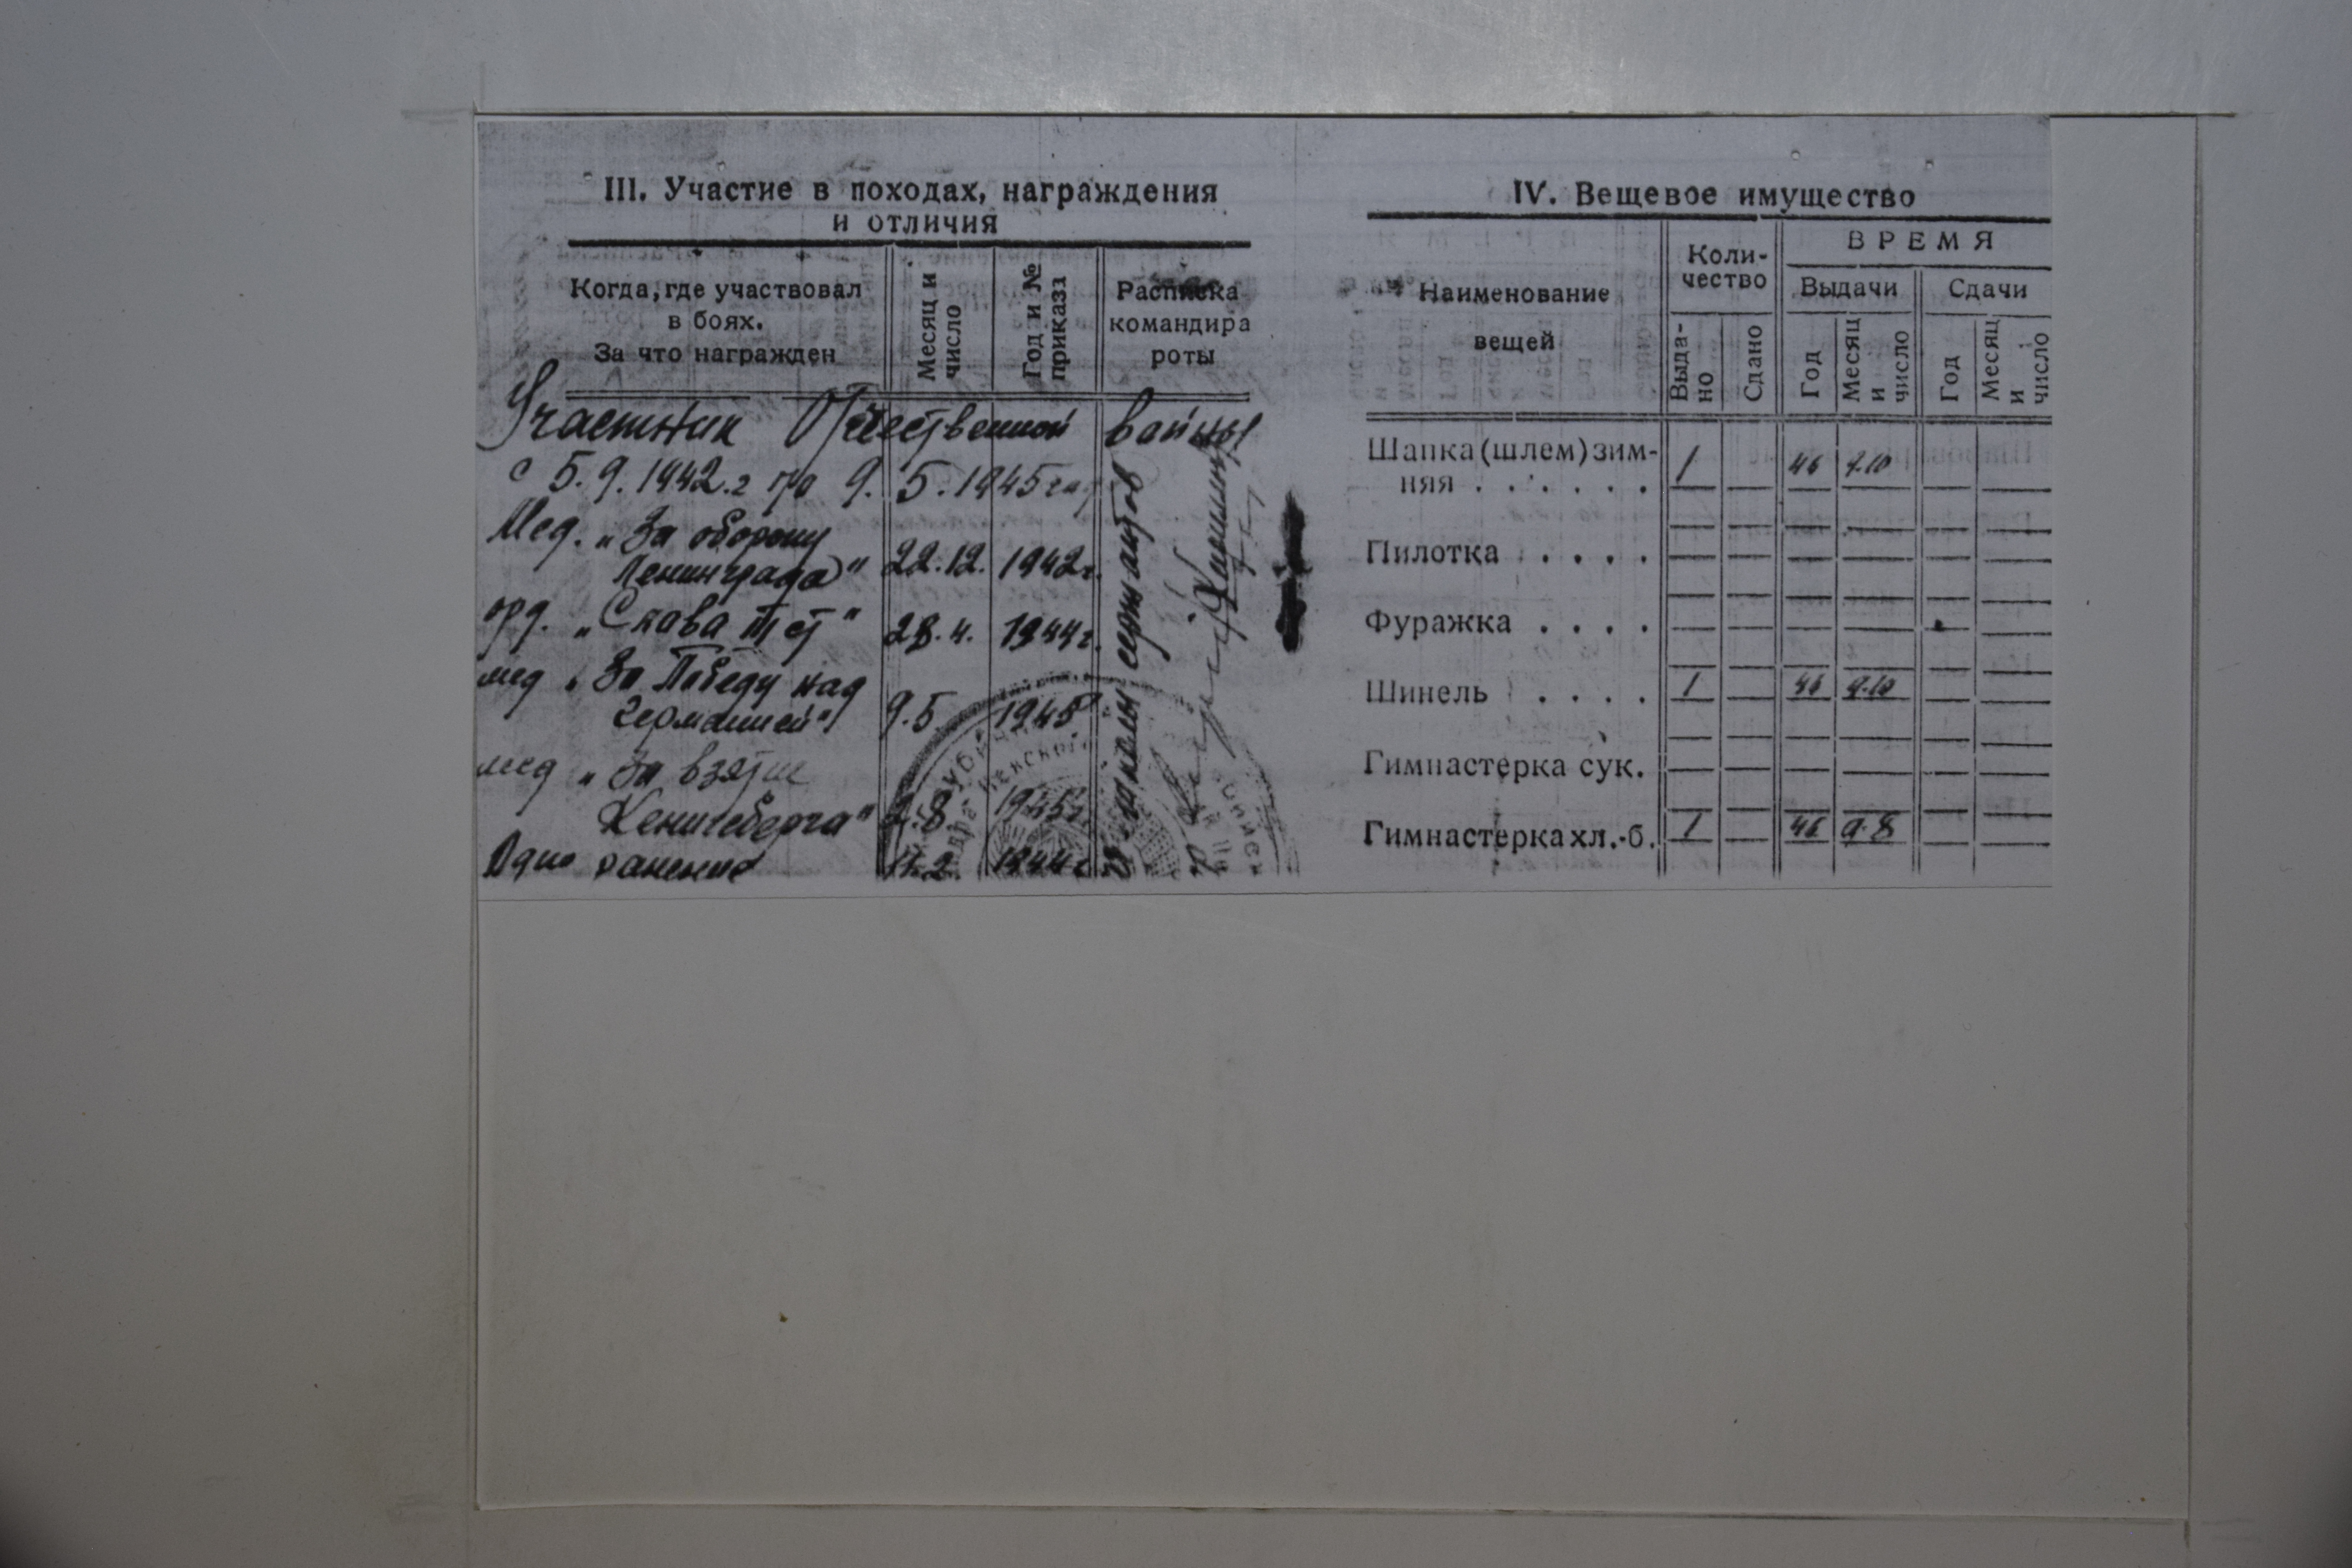 III. Участие в походах, награждения
и отличия
Когда, где участвовал
в боях.
За что награжден
Месяц и
число
Год и №
приказа
Расписка
командира
роты
Участник Отечественной войны
с 5.9.1942.г по 9.5.1945
Мед. „За оборону
Ленинграда" 22.12. 1942г.
орд. „Слава III ст" 28.4. 1944г.
мед „За Победу над
Германией" 9.5 1945
мед „За взятие
Кенигсберга" 2.8. 1945г
Одно ранение 1944г
школы сержантов
IV. Вещевое имущество
Наименование
вещей
Коли-
чество
ВРЕМЯ
Выдачи
Сдачи
Выда-
но
Сдано
Год
Месяц
и
число
Год
Месяц
и
число
Шапка (шлем) зим-
няя . . . . . . 1 46
Пилотка . . . .
Фуражка . . . .
Шинель . . . . 1 46 9.10
Гимнастерка сук.
Гимнастерка хл.-б. 1 46 9.8